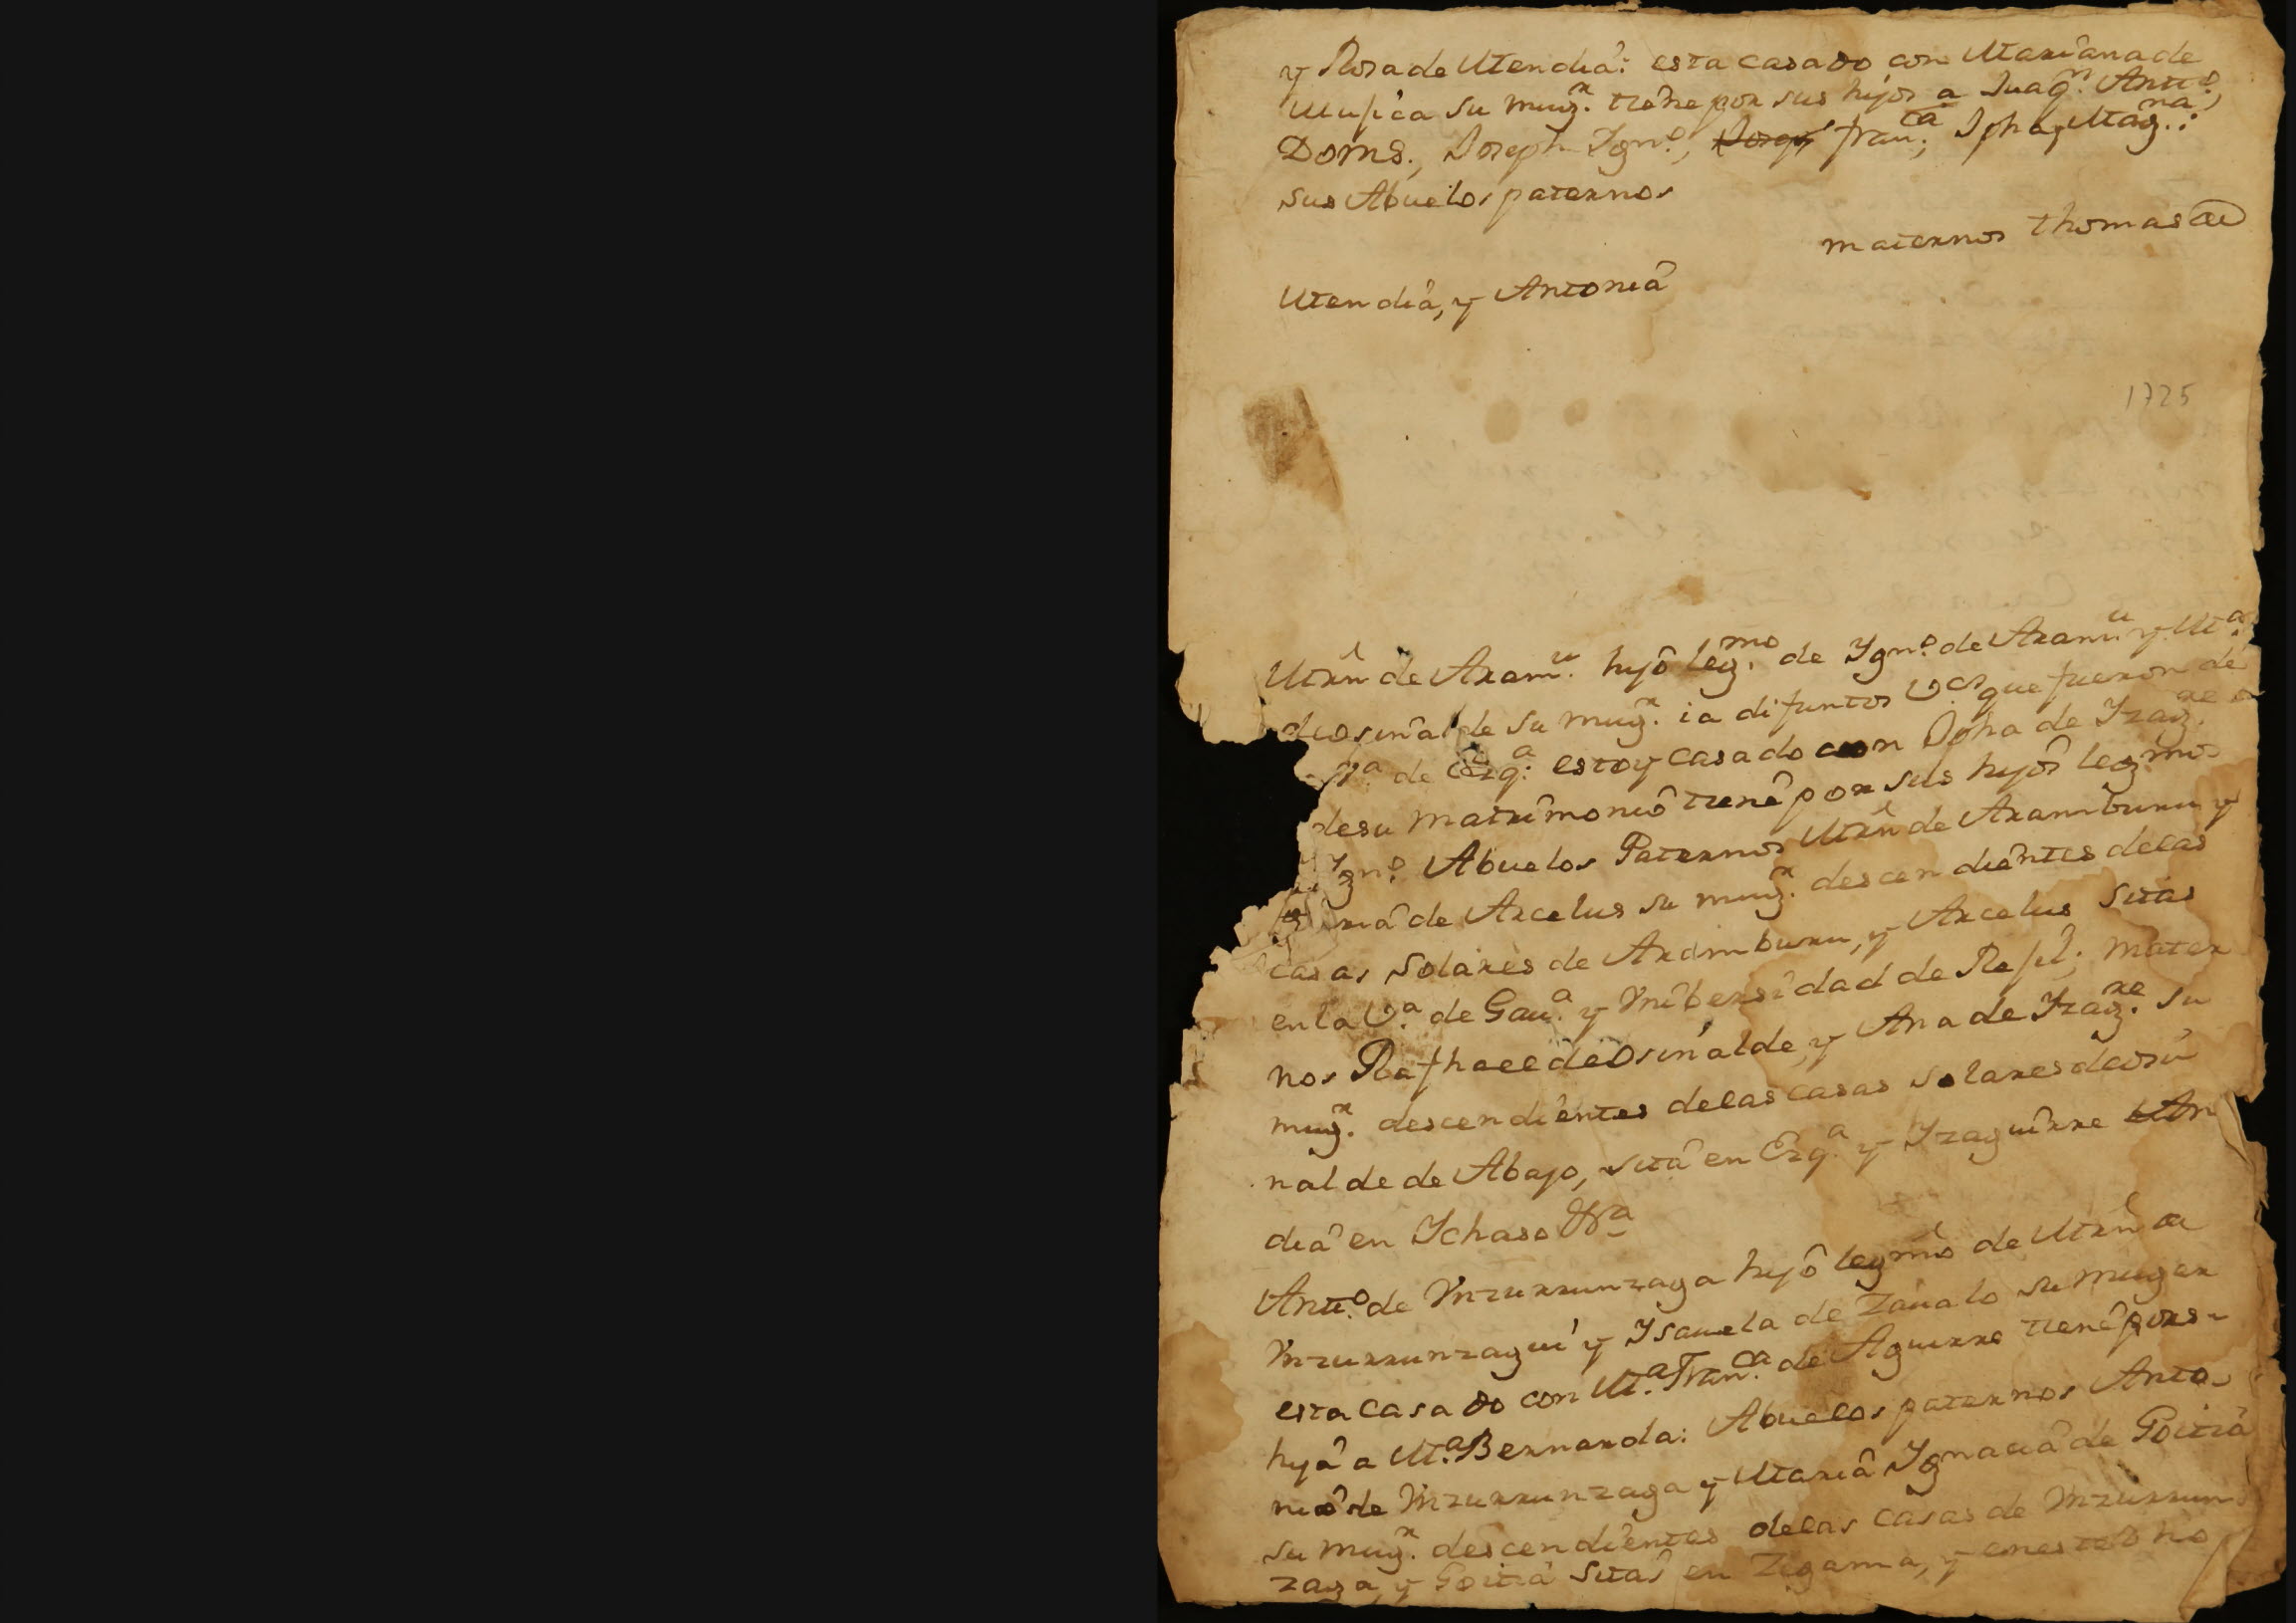 y Rosa de Mendia: esta casado con Mariana de
Musica su mug.r tiene por sus hijos a Juaq.n Antt.o,
Doms., Joseph Ign.o, fran.ca, Jpha y Mag.na:
sus Abuelos paternos
maternos thomas de
Mendia, y Antonia
1725
Mrn de Aram.u hijo leg.mo de Ygn.o de Aram.u y M.a
de osinalde su mug.r ia difuntos V.os que fueron de
de Ezq.a: estoy casado con Jpha de Yzag.re
de su matrimonio tiene por sus hijos legmos
Ygn.o Abuelos Paternos Mrn de Aramburu y
ria de Arcelus su mug.r descendientes de las
casas Solares de Aramburu, y Arcelus sitas
en la V.a de Gau.a y Vnibersidad de Resil; mater
nos Rafhael de Osinalde, y Ana de Yzag.re su
mug.r descendientes de las casas solares de osi
nalde de Abajo, sita en Ezq.a y Yzaguirre
dia en Ychaso
Antt.o de Ynzurrunzaga hijo legmo de Mrn de
Ynzurrunzagui y Ysauela de Zaualo su muger
esta casado con M.a Fran.ca de Aguirre tiene por s
hija a M.a Bernarda: Abuelos paternos Anto
nio de Ynzurrunzaga y Maria Ygnacia de Goitia
su mug.r descendientes de las casas de Ynzurrun
zaga, y Goitia sitas en Zegama, y